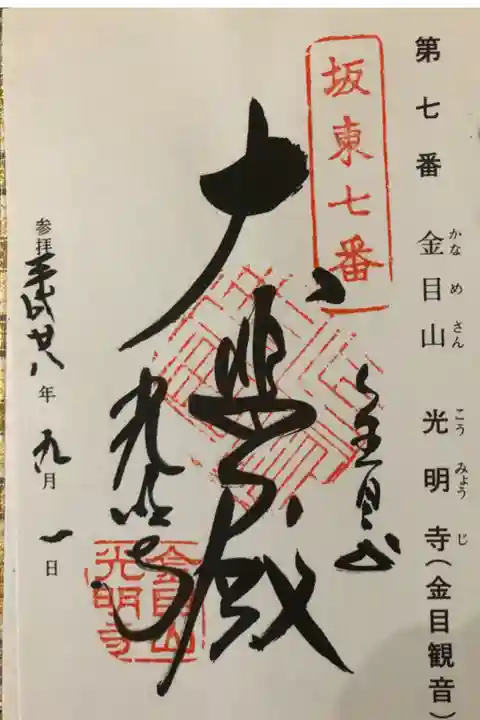 第七番 金目山 光明寺(金目観音)
かな め さん こう みょう じ
坂東七番
金目山
大悲殿
光明寺
金目山
光明寺
参拝 平成廿八年 九月 一日